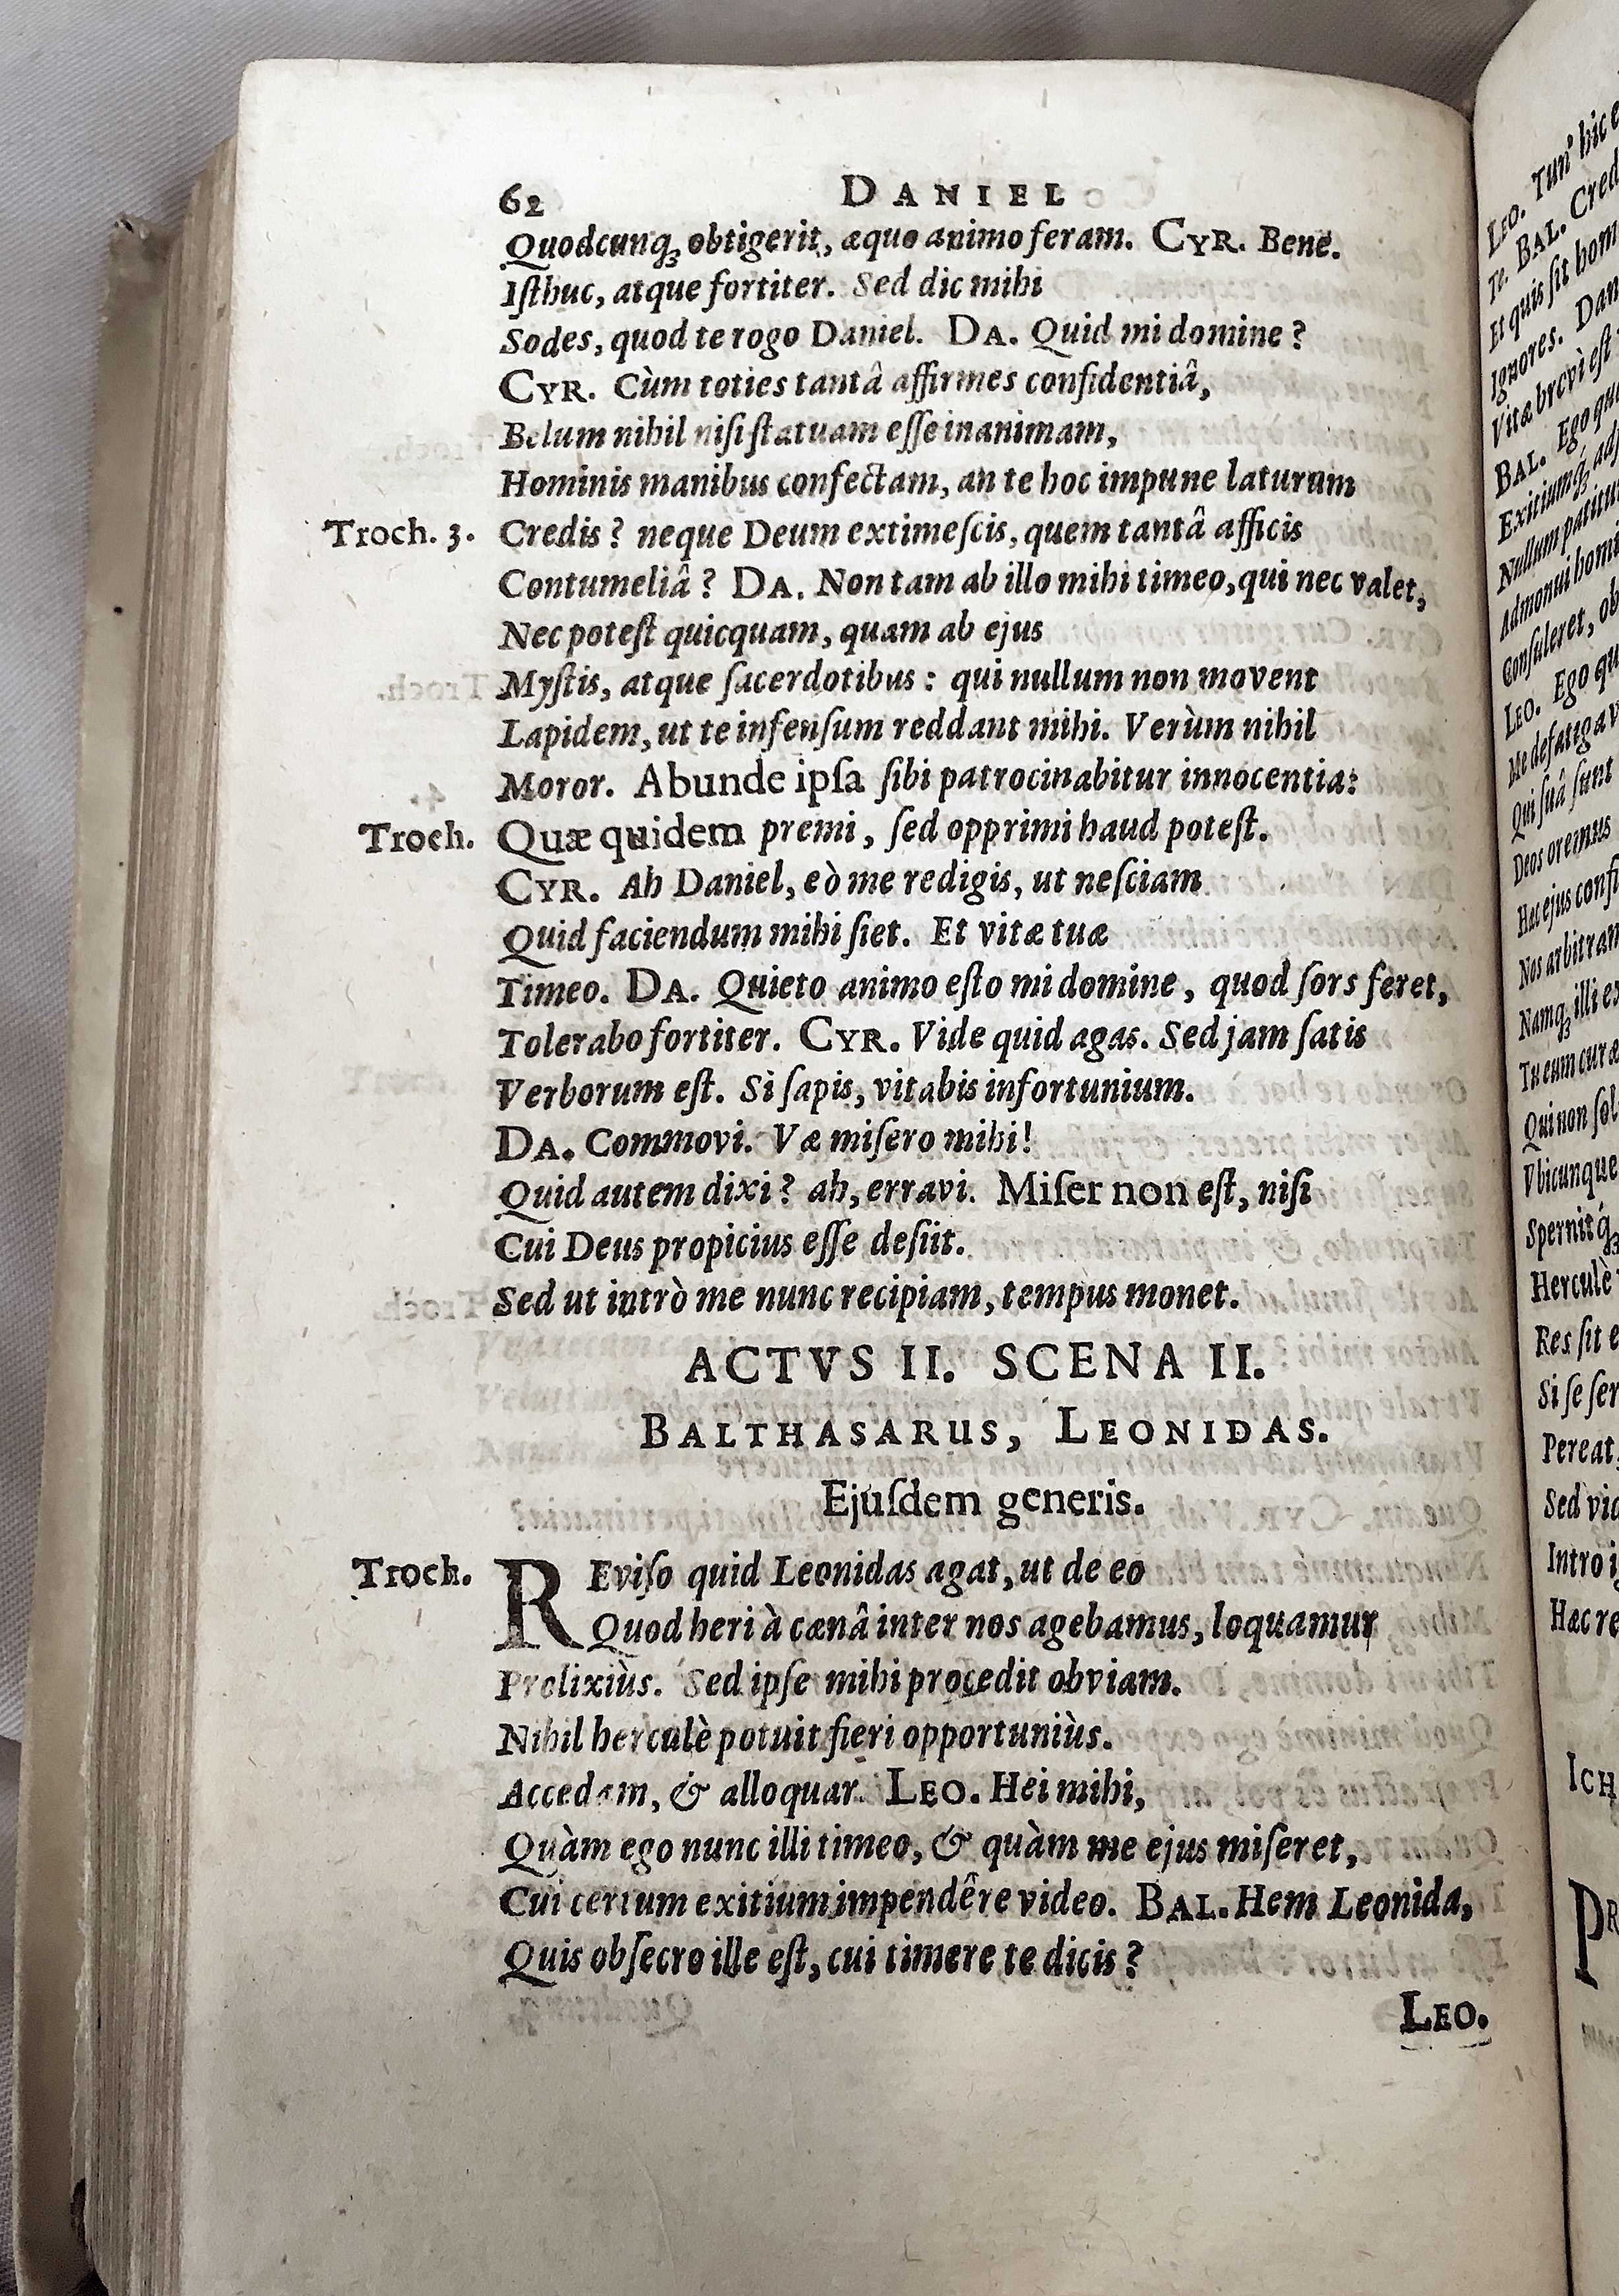 62 DANIEL
Quodcunq; obtigerit, æquo animo feram. CYR. Bene.
Iſthuc, atque fortiter. Sed dic mihi
Sodes, quod te rogo Daniel. DA. Quid mi domine?
CYR. Cùm toties tantâ affirmes confidentiâ,
Belum nihil niſi ſtatuam eſſe inanimam,
Hominis manibus confectam, an te hoc impune laturum
Troch. 3. Credis? neque Deum extimeſcis, quem tantâ afficis
Contumeliâ? DA. Non tam ab illo mihi timeo, qui nec valet,
Nec poteſt quicquam, quam ab ejus
Myſtis, atque ſacerdotibus: qui nullum non movent
Lapidem, ut te infenſum reddant mihi. Verùm nihil
Moror. Abunde ipſa ſibi patrocinabitur innocentia:
Troch. Quæ quidem premi, ſed opprimi haud poteſt.
CYR. Ah Daniel, eò me redigis, ut neſciam
Quid faciendum mihi ſiet. Et vitæ tuæ
Timeo. DA. Quieto animo eſto mi domine, quod ſors feret,
Tolerabo fortiter. CYR. Vide quid agas. Sed jam ſatis
Verborum eſt. Si ſapis, vitabis infortunium.
DA. Commovi. Væ miſero mihi!
Quid autem dixi? ah, erravi. Miſer non eſt, niſi
Cui Deus propicius eſſe deſiit.
Sed ut intrò me nunc recipiam, tempus monet.
ACTVS II. SCENA II.
BALTHASARUS, LEONIDAS.
Ejuſdem generis.
Troch. REviſo quid Leonidas agat, ut de eo
Quod heri à cænâ inter nos agebamus, loquamur
Prolixiùs. Sed ipſe mihi procedit obviam.
Nihil herculè potuit fieri opportuniùs.
Accedam, & alloquar. LEO. Hei mihi,
Quàm ego nunc illi timeo, & quàm me ejus miſeret,
Cui certum exitium impendêre video. BAL. Hem Leonida,
Quis obſecro ille eſt, cui timere te dicis?
LEO.
LEO. Tun' hic
Te. BAL.
Et quis ſit
Ignores.
Vitæ brevi eſt
BAL. Ego
Exitiumq́;
Nullum
Admonui
Conſuleret,
LEO. Ego
Me
Qui ſuâ ſunt
Deos oremus
Hæc ejus
Nos
Namq; illi
Tu eum
Qui non
Vbicunque
Spernitq́;
Herculè
Res ſit
Si ſe
Pereat,
Sed
Intro
Hæc